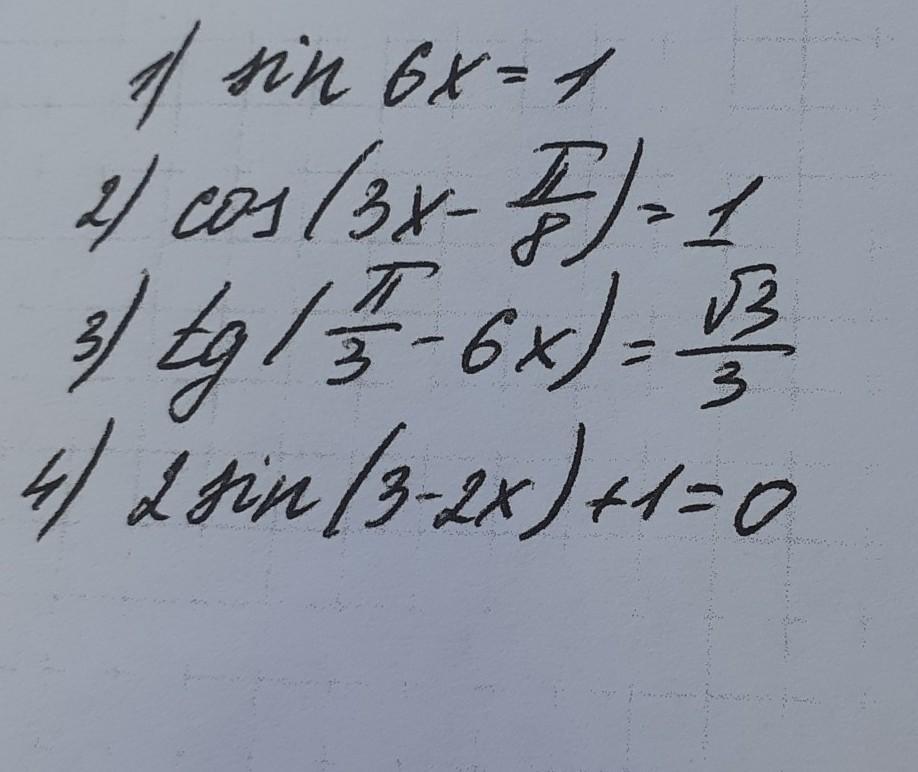 1) sin 6x = 1
2) cos(3x - π/8) = 1
3) tg(π/3 - 6x) = √3/3
4) 2 sin(3-2x) + 1 = 0